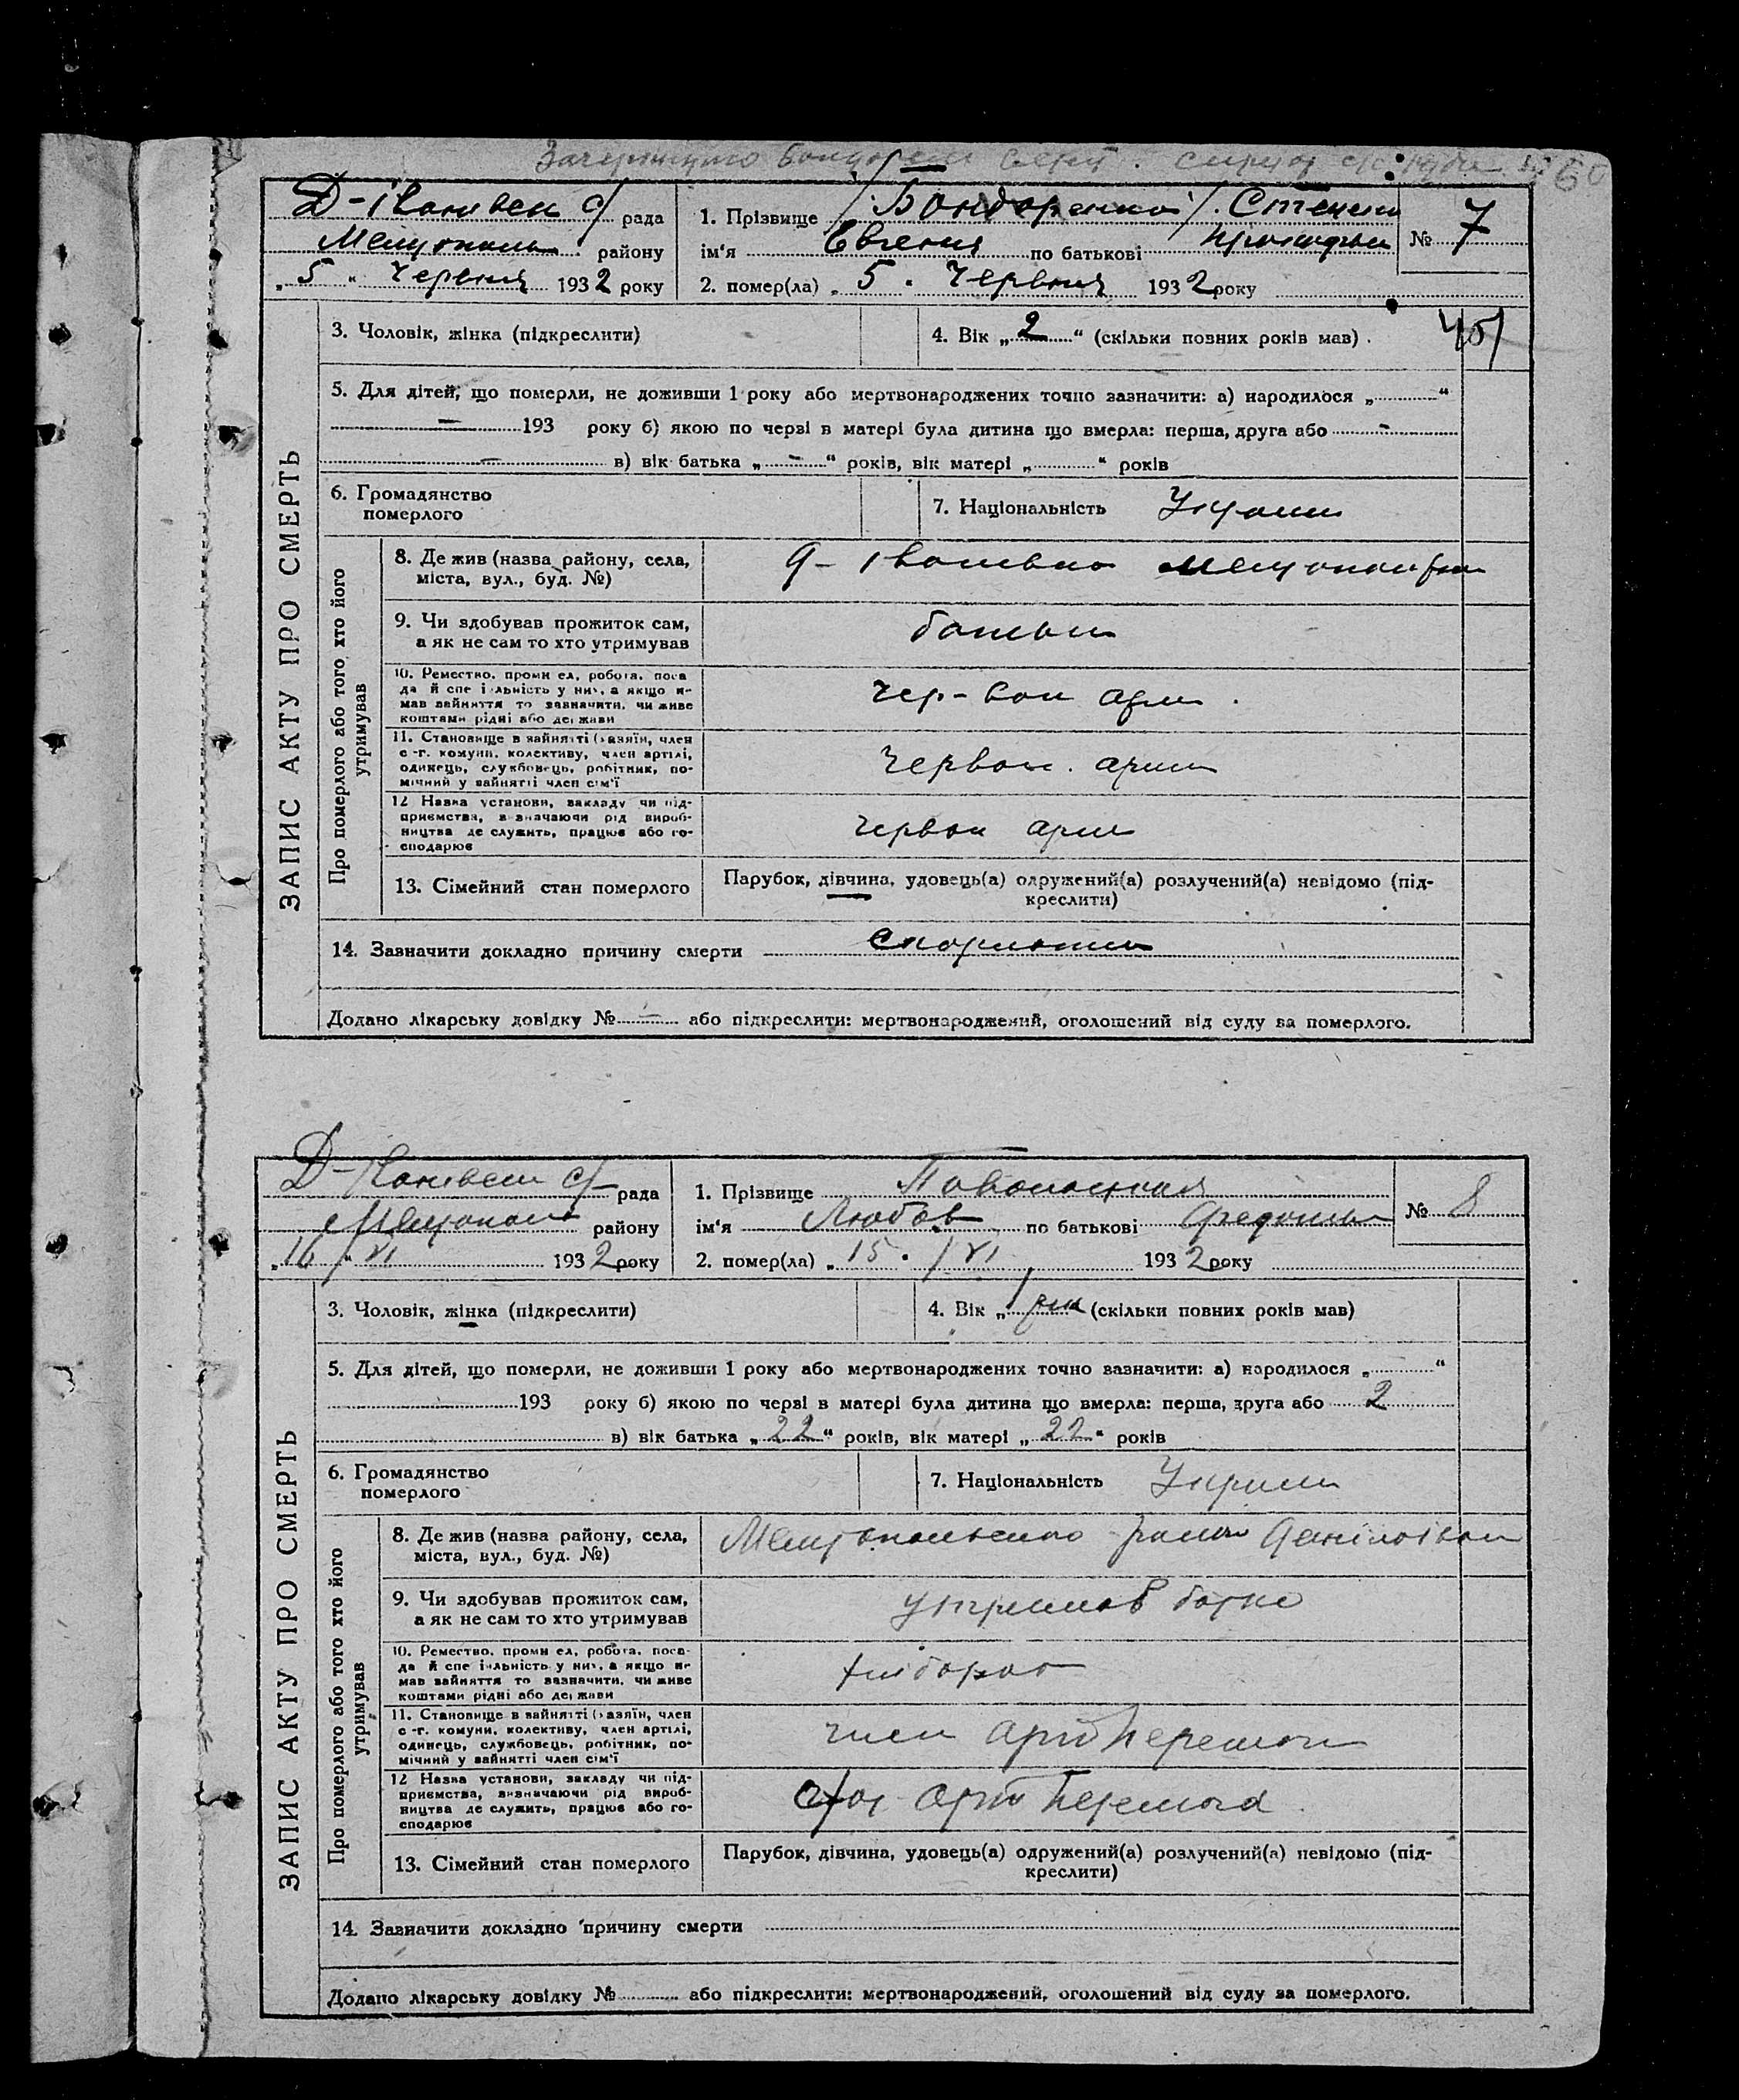 Д-Іванівськ с/ рада
Мелітополь району
„5“ Червня 1932 року
1. Прізвище /Бондаренко/.
ім‘я Евгения по батькові
2. помер(ла) „5“ Червня 1932 року
№ 7
ЗАПИС АКТУ ПРО СМЕРТЬ
3. Чоловік, жінка (підкреслити)
4. Вік „2“ (скільки повних років мав).
5. Для дітей, що померли, не доживши 1 року або мертвонароджених точно зазначити: а) народилося „ “
— 193 року б) якою по черзі в матері була дитина що вмерла: перша, друга або —
— в) вік батька „—“ років, вік матері „ “ років
6. Громадянство
померлого
7. Національність Украин
Про померлого або того хто його
утримував
8. Де жив (назва району, села,
міста, вул., буд. №)
9. Чи здобував прожиток сам,
а як не сам то хто утримував
батьки
10. Ремество, промисел, робота, поса
да й спеціяльність у них, а якщо не
мав зайняття то зазначити, чи живе
коштами рідні або держави
чер-вон арм.
11. Становище в зайнятті (хазяїн, член
с-г. комуни, колективу, член артілі,
одинець, службовець, робітник, по-
мічний у зайнятті член сім‘ї
Червон. арми
12 Назва установи, закладу чи під-
приємства, визначаючи рід вироб-
ництва де служить, працює або го-
сподарює
червон арм
13. Сімейний стан померлого
Парубок, дівчина, удовець(а) одружений(а) розлучений(а) невідомо (під-
креслити)
14. Зазначити докладно причину смерти
Додано лікарську довідку № — або підкреслити: мертвонароджений, оголошений від суду за померлого.
Д-Іванівськ с/ рада
Мелітополь району
„16“ VI 1932 року
1. Прізвище
ім‘я Любов по батькові
2. помер(ла) „15“ VI 1932 року
№ 8
ЗАПИС АКТУ ПРО СМЕРТЬ
3. Чоловік, жінка (підкреслити)
4. Вік „1 рік (скільки повних років мав)
5. Для дітей, що померли, не доживши 1 року або мертвонароджених точно зазначити: а) народилося „ “
193 року б) якою по черзі в матері була дитина що вмерла: перша, друга або 2
в) вік батька „22“ років, вік матері „22“ років
6. Громадянство
померлого
7. Національність Украин
Про померлого або того хто його
утримував
8. Де жив (назва району, села,
міста, вул., буд. №)
Мелітопольського район
9. Чи здобував прожиток сам,
а як не сам то хто утримував
утримував батько
10. Ремество, промисел, робота, поса-
да й спеціяльність у них, а якщо не
мав зайняття то зазначити, чи живе
коштами рідні або держави
хлібороб
11. Становище в зайнятті (хазяїн, член
с-г. комуни, колективу, член артілі,
одинець, службовець, робітник, по-
мічний у зайнятті член сім‘ї
член арт Перемога
12 Назва установи, закладу чи під-
приємства, визначаючи рід вироб-
ництва де служить, працює або го-
сподарює
арт Перемога
13. Сімейний стан померлого
Парубок, дівчина, удовець(а) одружений(а) розлучений(а) невідомо (під-
креслити)
14. Зазначити докладно причину смерти
Додано лікарську довідку № або підкреслити: мертвонароджений, оголошений від суду за померлого.